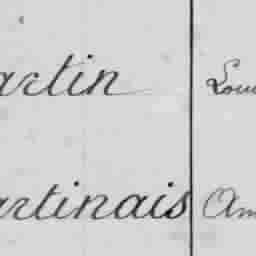 artin Lou
artinais Am